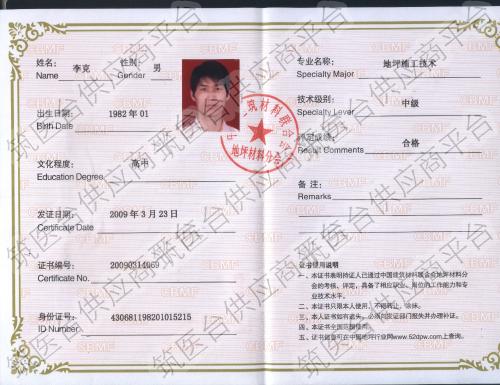 姓名: 李克 性别: 男
Name Gender
出生日期: 1982 年 01
Birth Date
文化程度: 高中
Education Degree
发证日期: 2009 年 3 月 23 日
Certificate Date
证书编号: 20090314069
Certificate No.
身份证号: 430681198201015215
ID Number
专业名称: 地坪施工技术
Specialty Major
技术级别: 中级
Specialty Lever
评定成绩: 合格
Result Comments
备 注:
Remarks
证书使用说明
一、本证书表明持证人已通过中国建筑材料联合会地坪材料分
会的考核、评定，具备了相应职业、岗位的工作能力和专
业技术水平。
二、本证书只限本人使用，不得转让、涂抹。
三、本人证书如有遗失，必须向发证部门报失并办理补证。
四、本证书全国范围使用。
五、证书信息可在中国地坪行业网www.52dpw.com上查询。
筑材料联合
地坪材料分会
CBMF
筑医台供应商平台